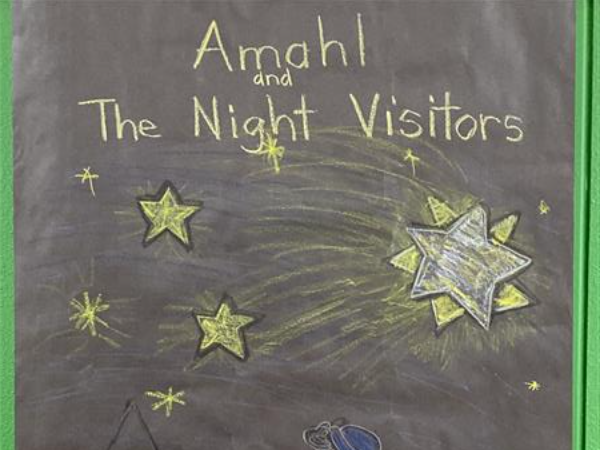 Amahl
and
The Night Visitors